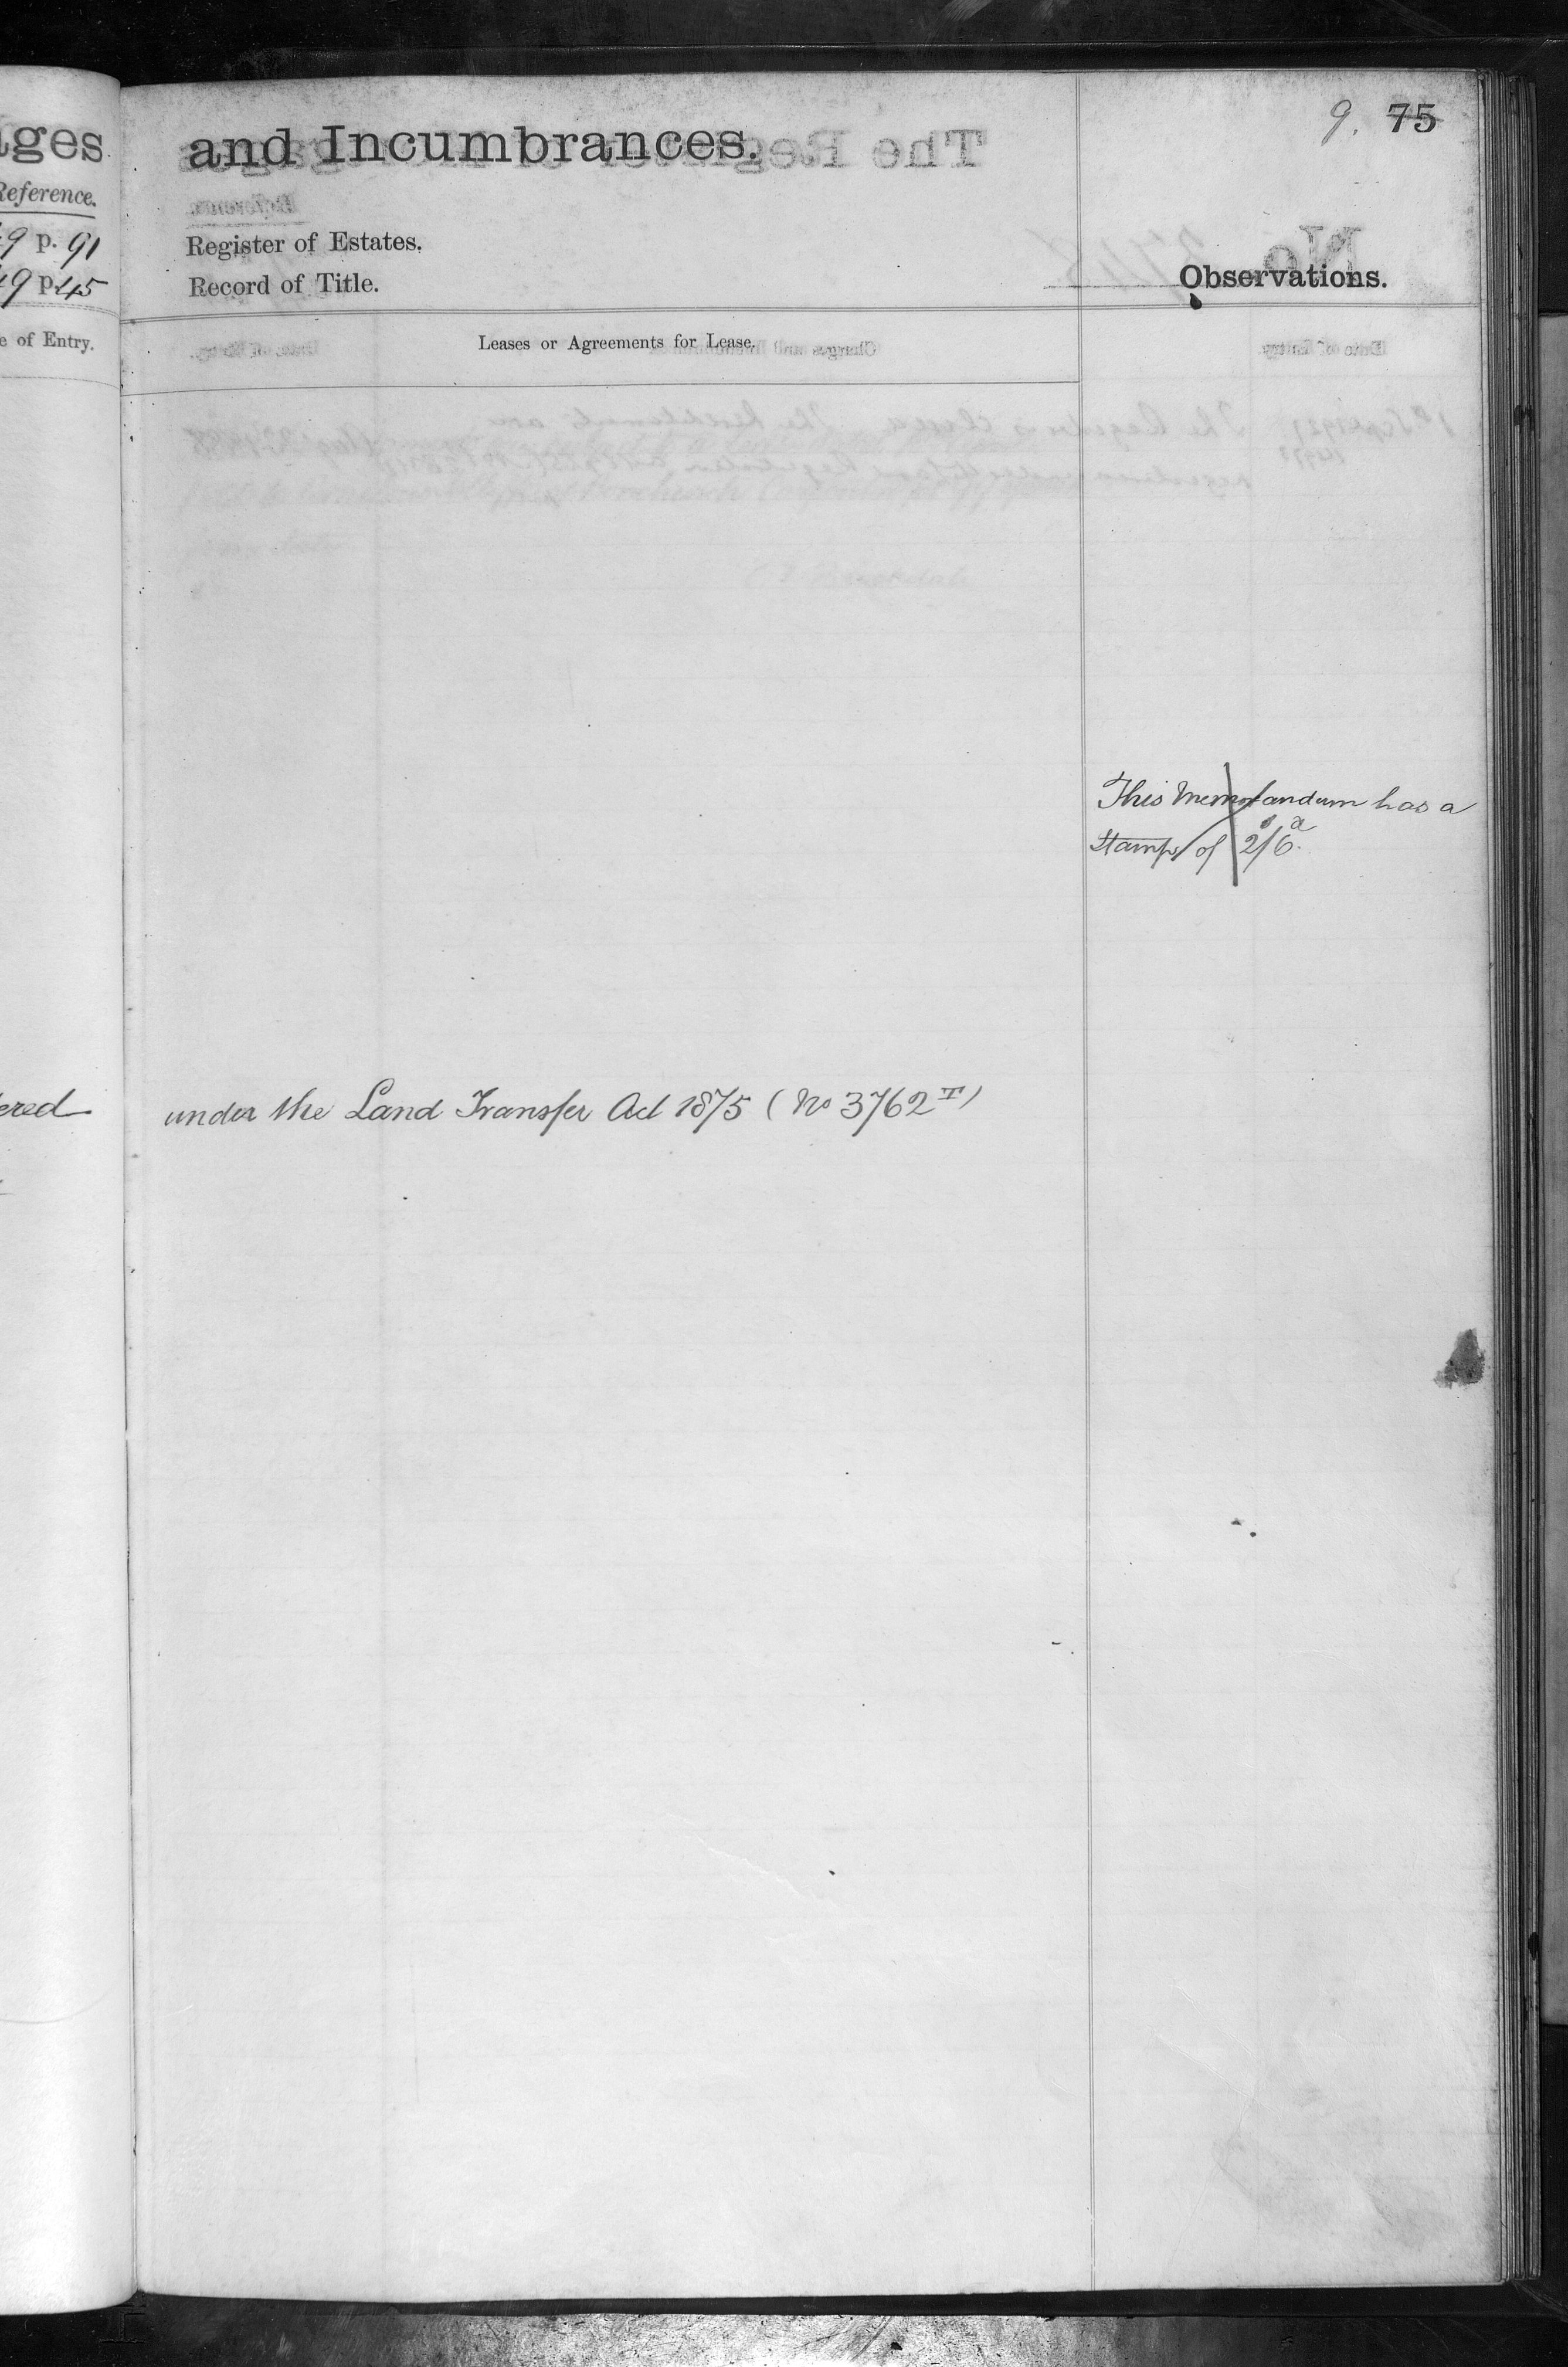 ages
Reference.
9 p. 91
49 p 45
e of Entry.
ered
9. 75
and Incumbrances.
Register of Estates.
Record of Title.
Observations.
Leases or Agreements for Lease.
This Memorandum has a
Stamp of 2s/6d.
under the Land Transfer Act 1875 (No 3762 T)